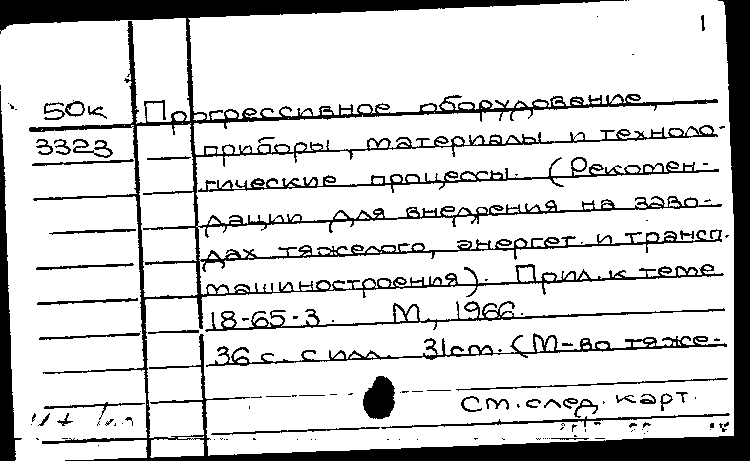 1
50к Прогрессивное оборудование,
3323 приборы, материалы и техноло-
гические процессы. (Рекомен-
дации для внедрения на заво-
дах тяжелого, энергет. и трансп.
машиностроения). Прил. к теме
18-65-3. М., 1966.
36 с. с илл. 31 см. (М-во тяже-
См. след. карт.